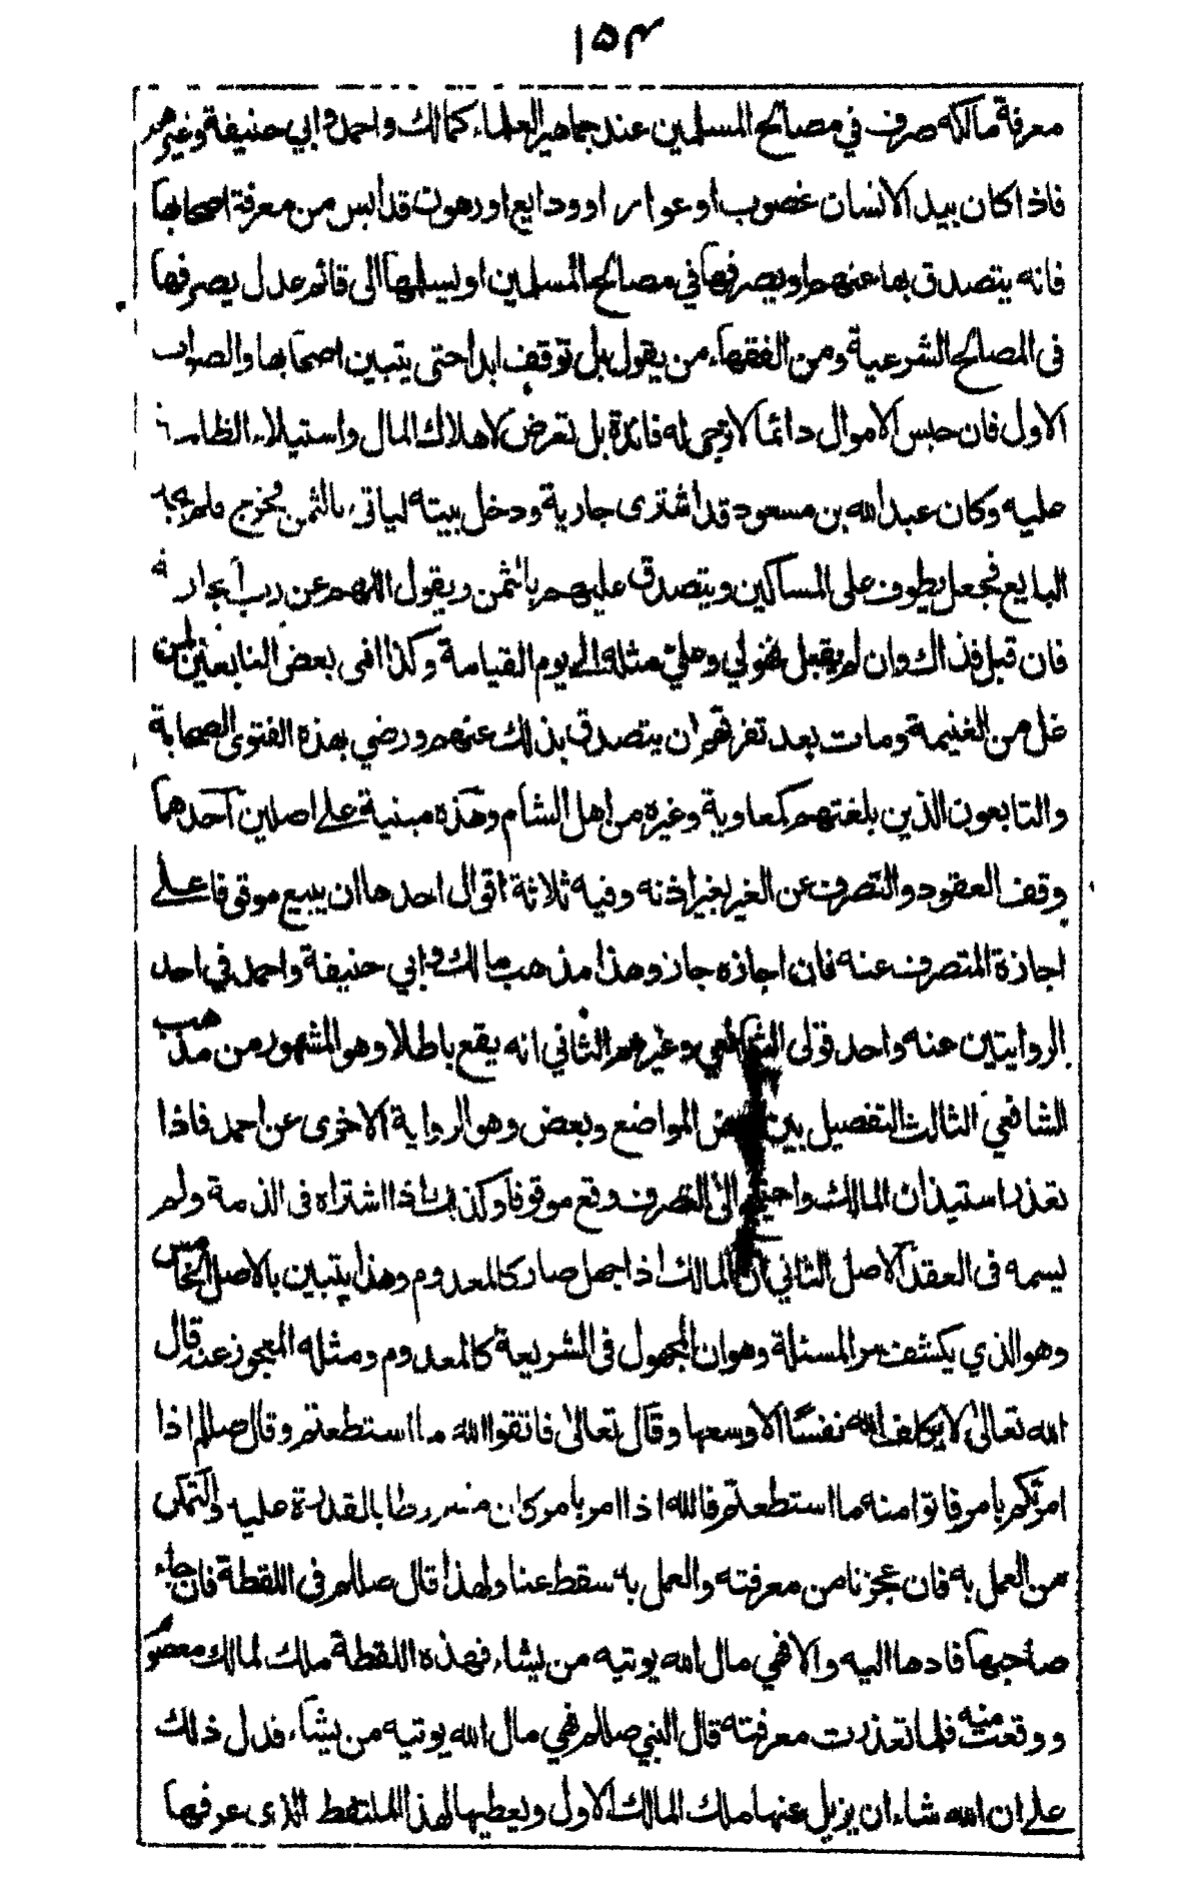 ١٥٣
معرفة مالكه صرف في مصالح المسلمين عند جماهير العلماء كمالك واحمد وابي حنيفة وغيرهم
فاذا كان بيد الانسان غصوب او عوار او ودايع او رهون قد ايس من معرفة اصحابها
فانه يتصدق بها عنهم او يصرفها في مصالح المسلمين او يسلمها الى قائم عدل يصرفها
فى المصالح الشرعية ومن الفقهاء من يقول بل توقف ابدا حتى يتبين اصحابها والصواب
الاول فان حبس الاموال دائما لا ترجى له فائدة بل تعرض لاهلاك المال واستيلاء الظلمة
عليه وكان عبد الله بن مسعود قد اشترى جارية ودخل بيته لياتي بالثمن فخرج فلم يجد
البايع فجعل يطوف على المساكين ويتصدق عليهم بالثمن ويقول اللهم عن رب الجارية
فان قبل فذاك وان لم يقبل فهو لي وعلي مثله له الى يوم القيامة وكذا افتى بعض التابعين لمن
غل من الغنيمة ومات بعد تفرقهم ان يتصدق بذلك عنهم ورضي بهذه الفتوى الصحابة
والتابعون الذين بلغتهم كمعاوية وغيره من اهل الشام وهذه مبنية على اصلين احدهما
وقف العقود والتصرف عن الغير بغير اذنه وفيه ثلاثة اقوال احدها ان يبيع موقوفا على
اجازة المتصرف عنه فان اجازه جاز وهذا مذهب مالك وابي حنيفة واحمد في احد
الروايتين عنه واحد قولى الشافعي وغيرهم الثاني انه يقع باطلا وهو المشهور من مذهب
الشافعي الثالث التفصيل بين بعض المواضع وبعض وهو الرواية الاخرى عن احمد فاذا
تعذر استيذان المالك واحتيج الى التصرف وقع موقوفا وكذلك اذا اشتراه فى الذمة ولم
يسمه فى العقد الاصل الثاني ان المالك اذا جهل صار كالمعدوم وهذا يتبين بالاصل الخامس
وهو الذي يكشف سر المسئلة وهو ان المجهول فى الشريعة كالمعدوم ومثله المعجوز عنه قال
الله تعالى لا يكلف الله نفسا الا وسعها وقال تعالى فاتقوا الله ما استطعتم وقال صللم اذا
امرتكم بامر فاتوا منه ما استطعتم فالله اذا امر بامر كان مشروطا بالقدرة عليه والتمكن
من العمل به فان عجزنا من معرفته والعمل به سقط عنا ولهذا قال صللم فى اللقطة فان جاء
صاحبها فادها اليه والا فهي مال الله يوتيه من يشاء فهذه اللقطة ملك لمالك معصوم
ووقعت منه فلما تعذرت معرفته قال النبي صللم فهي مال الله يوتيه من يشاء فدل ذلك
على ان الله شاء ان يزيل عنها ملك المالك الاول ويعطيها لهذا الملتقط الذى عرفها